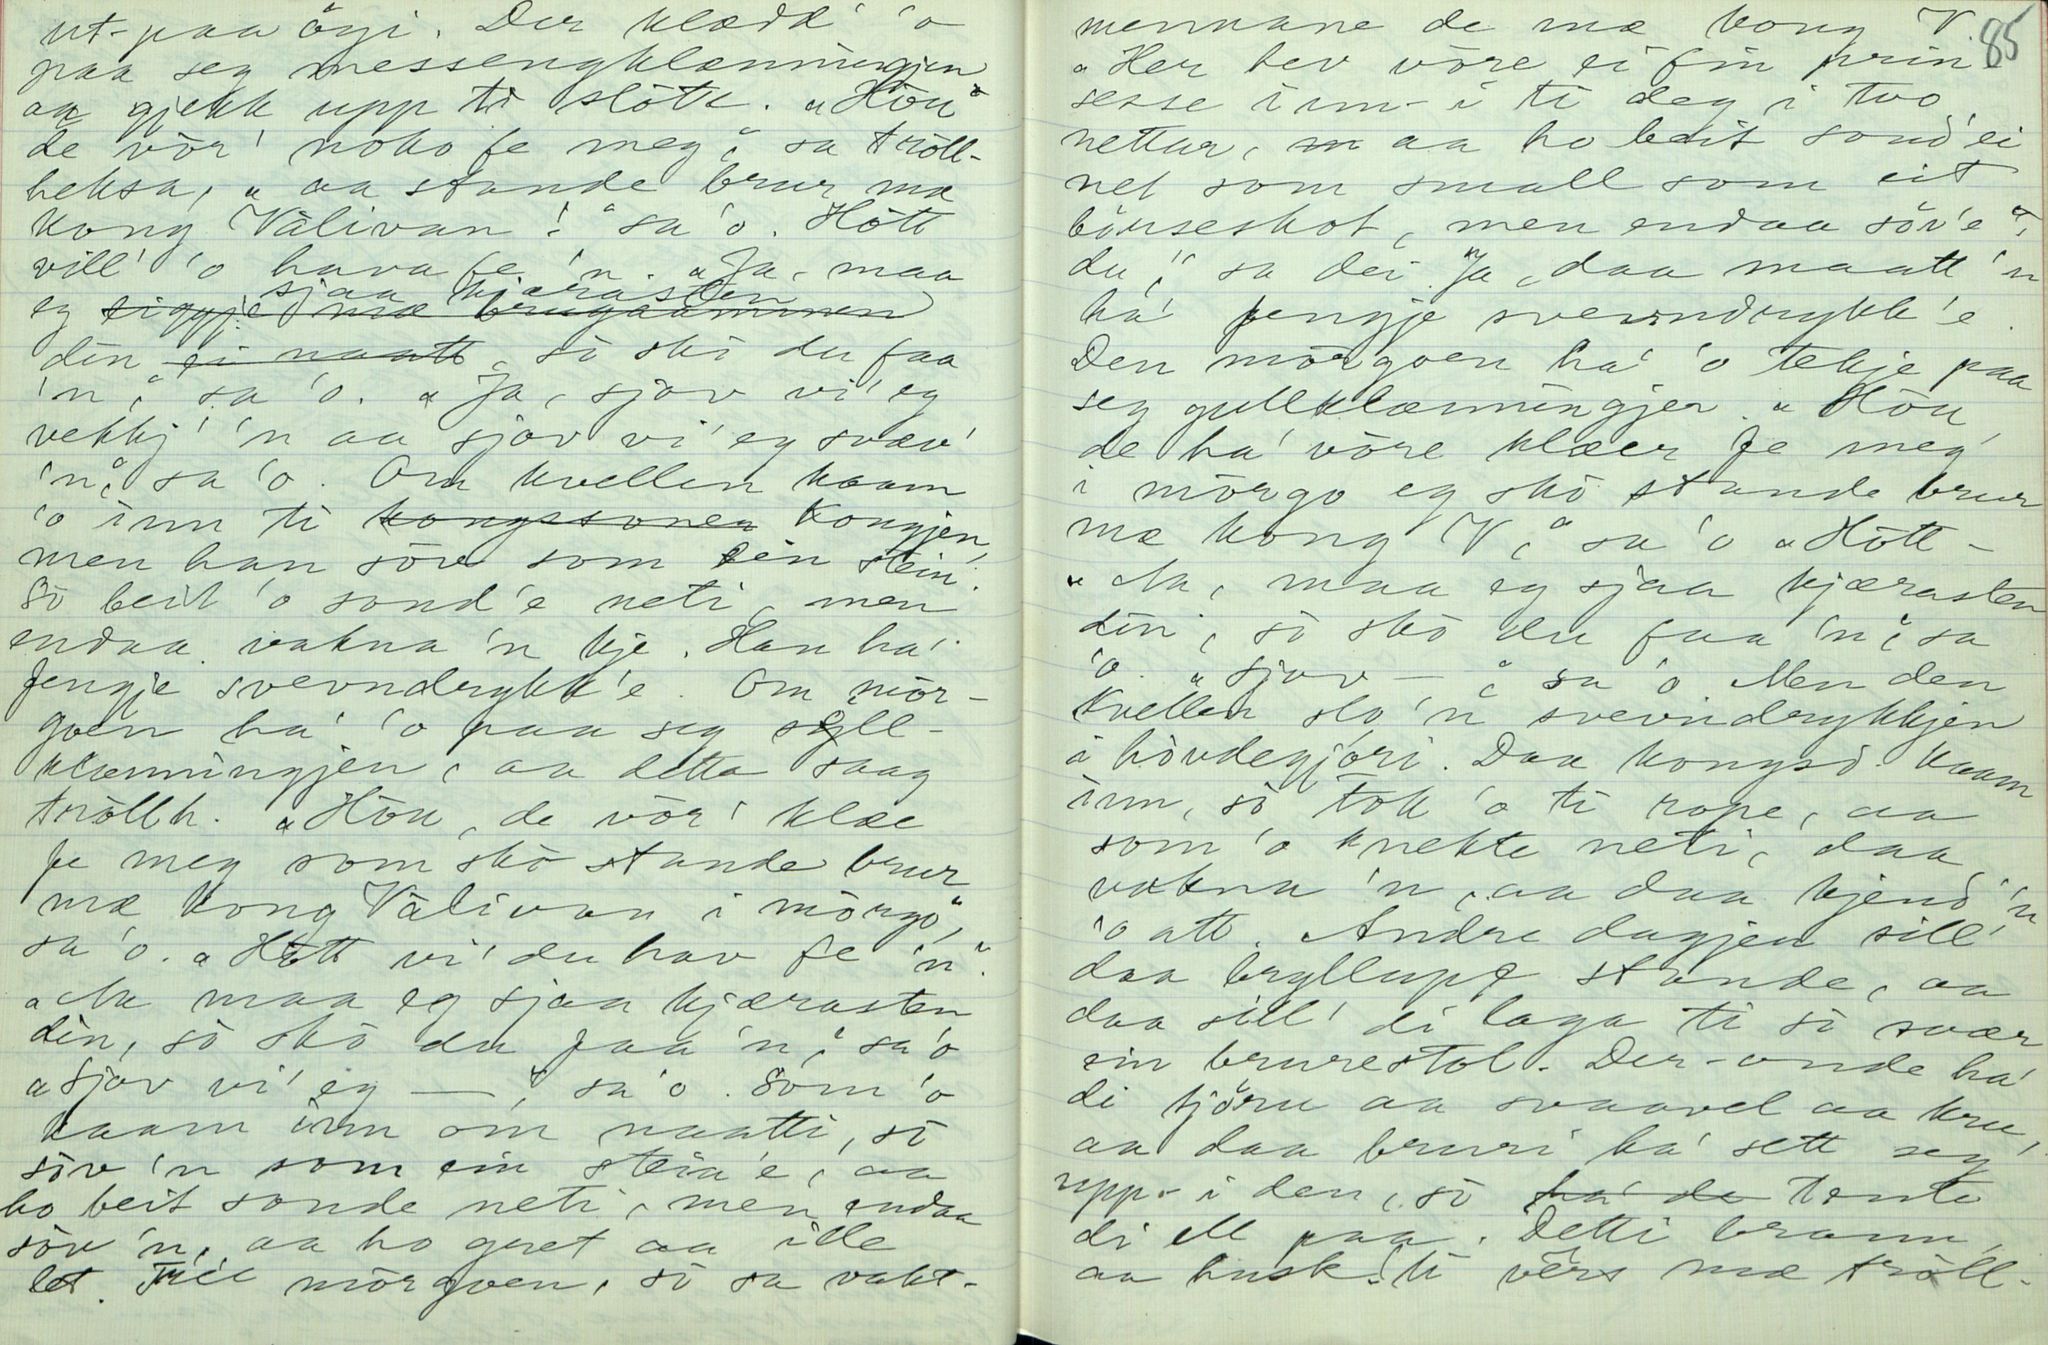 ut-paa öyi. Der klædd' 'o
paa seg messengklænningjen
aa gjekk upp ti slôtte. „Hôu
de vôr' noko fe meg," sa trôll-
heksa, „aa stande brur mæ
kong Vàlivan!" sa 'o. Hôtt
vill' 'o hava fe 'n. „Ja, maa
sjaa kjærasten
eg siggje mæ brugaammen
din ei naatt, sô skô du faa
'n," sa 'o. „Ja, sjøv vi' eg
vekkj' 'n aa sjøv vi' eg svæv'
'n," sa 'o. Om kvellen kaam
'o inn ti kongssonen Kongjen,
men han sôv som ein stein.
Sô beit 'o sond'e neti, men
endaa vakna 'n kje. Han ha'
fengje svevndrykk'e. Om môr-
goen ha' 'o paa seg syll-
klænningjen, aa detta saag
trôllh. „Hôu, de vôr' klæe
fe meg som skô stande brur
mæ kong Vàlivan i môrgo,"
sa 'o. „Hôtt vi' du hav fe 'n".
„Aa maa eg sjaa kjærasten
din, sô skô du faa 'n," sa 'o
„Sjøv vi' eg —," sa 'o. Som 'o
kaam inn om naatti, sô
sôv 'n som ein stein'e, aa
ho beit sonde neti, men endaa
sôv 'n, aa ho gret aa ille
let. Till môrgoen, sô sa vakt-
mennane de mæ kong V.
85
„Her hev vôre ei fin prin-
sesse inn-i ti deg i two
nettur, aa ho beit sond' ei
net som small som eit
börseskot, men endaa sôv'e
du," sa dei. „Ja, daa maatt 'n
ha' fengje svevndrykk'e.
Den môrgoen ha' 'o tekje paa
seg gullklænningjen. „Hôu,
de ha' vôre klæer fe meg
i môrgo eg skô stande brur
mæ kong V," sa 'o „Hôtt —
„Aa, maa eg sjaa kjærasten
din, sô skô du faa 'n," sa
'o. „Sjøv —," sa 'o. Men den
kvellen slo 'n svevndrykkjen
i hôvdegjøri. Daa kongsd. kaam
inn, sô tok 'o ti rope, aa
som 'o knekte neti, daa
vakna 'n, aa daa kjend' 'n
'o att. Andre dagjen sill'
daa bryllupe stande, aa
daa sill' di laga ti sô svær
ein brurestol. Der-onde ha'
di tjöru aa svaavel aa kru',
aa daa bruri ha' sett seg
upp-i den, sô ha' de tente
di ell paa. Detti brann,
aa husk. ti vêrs mæ trôll-